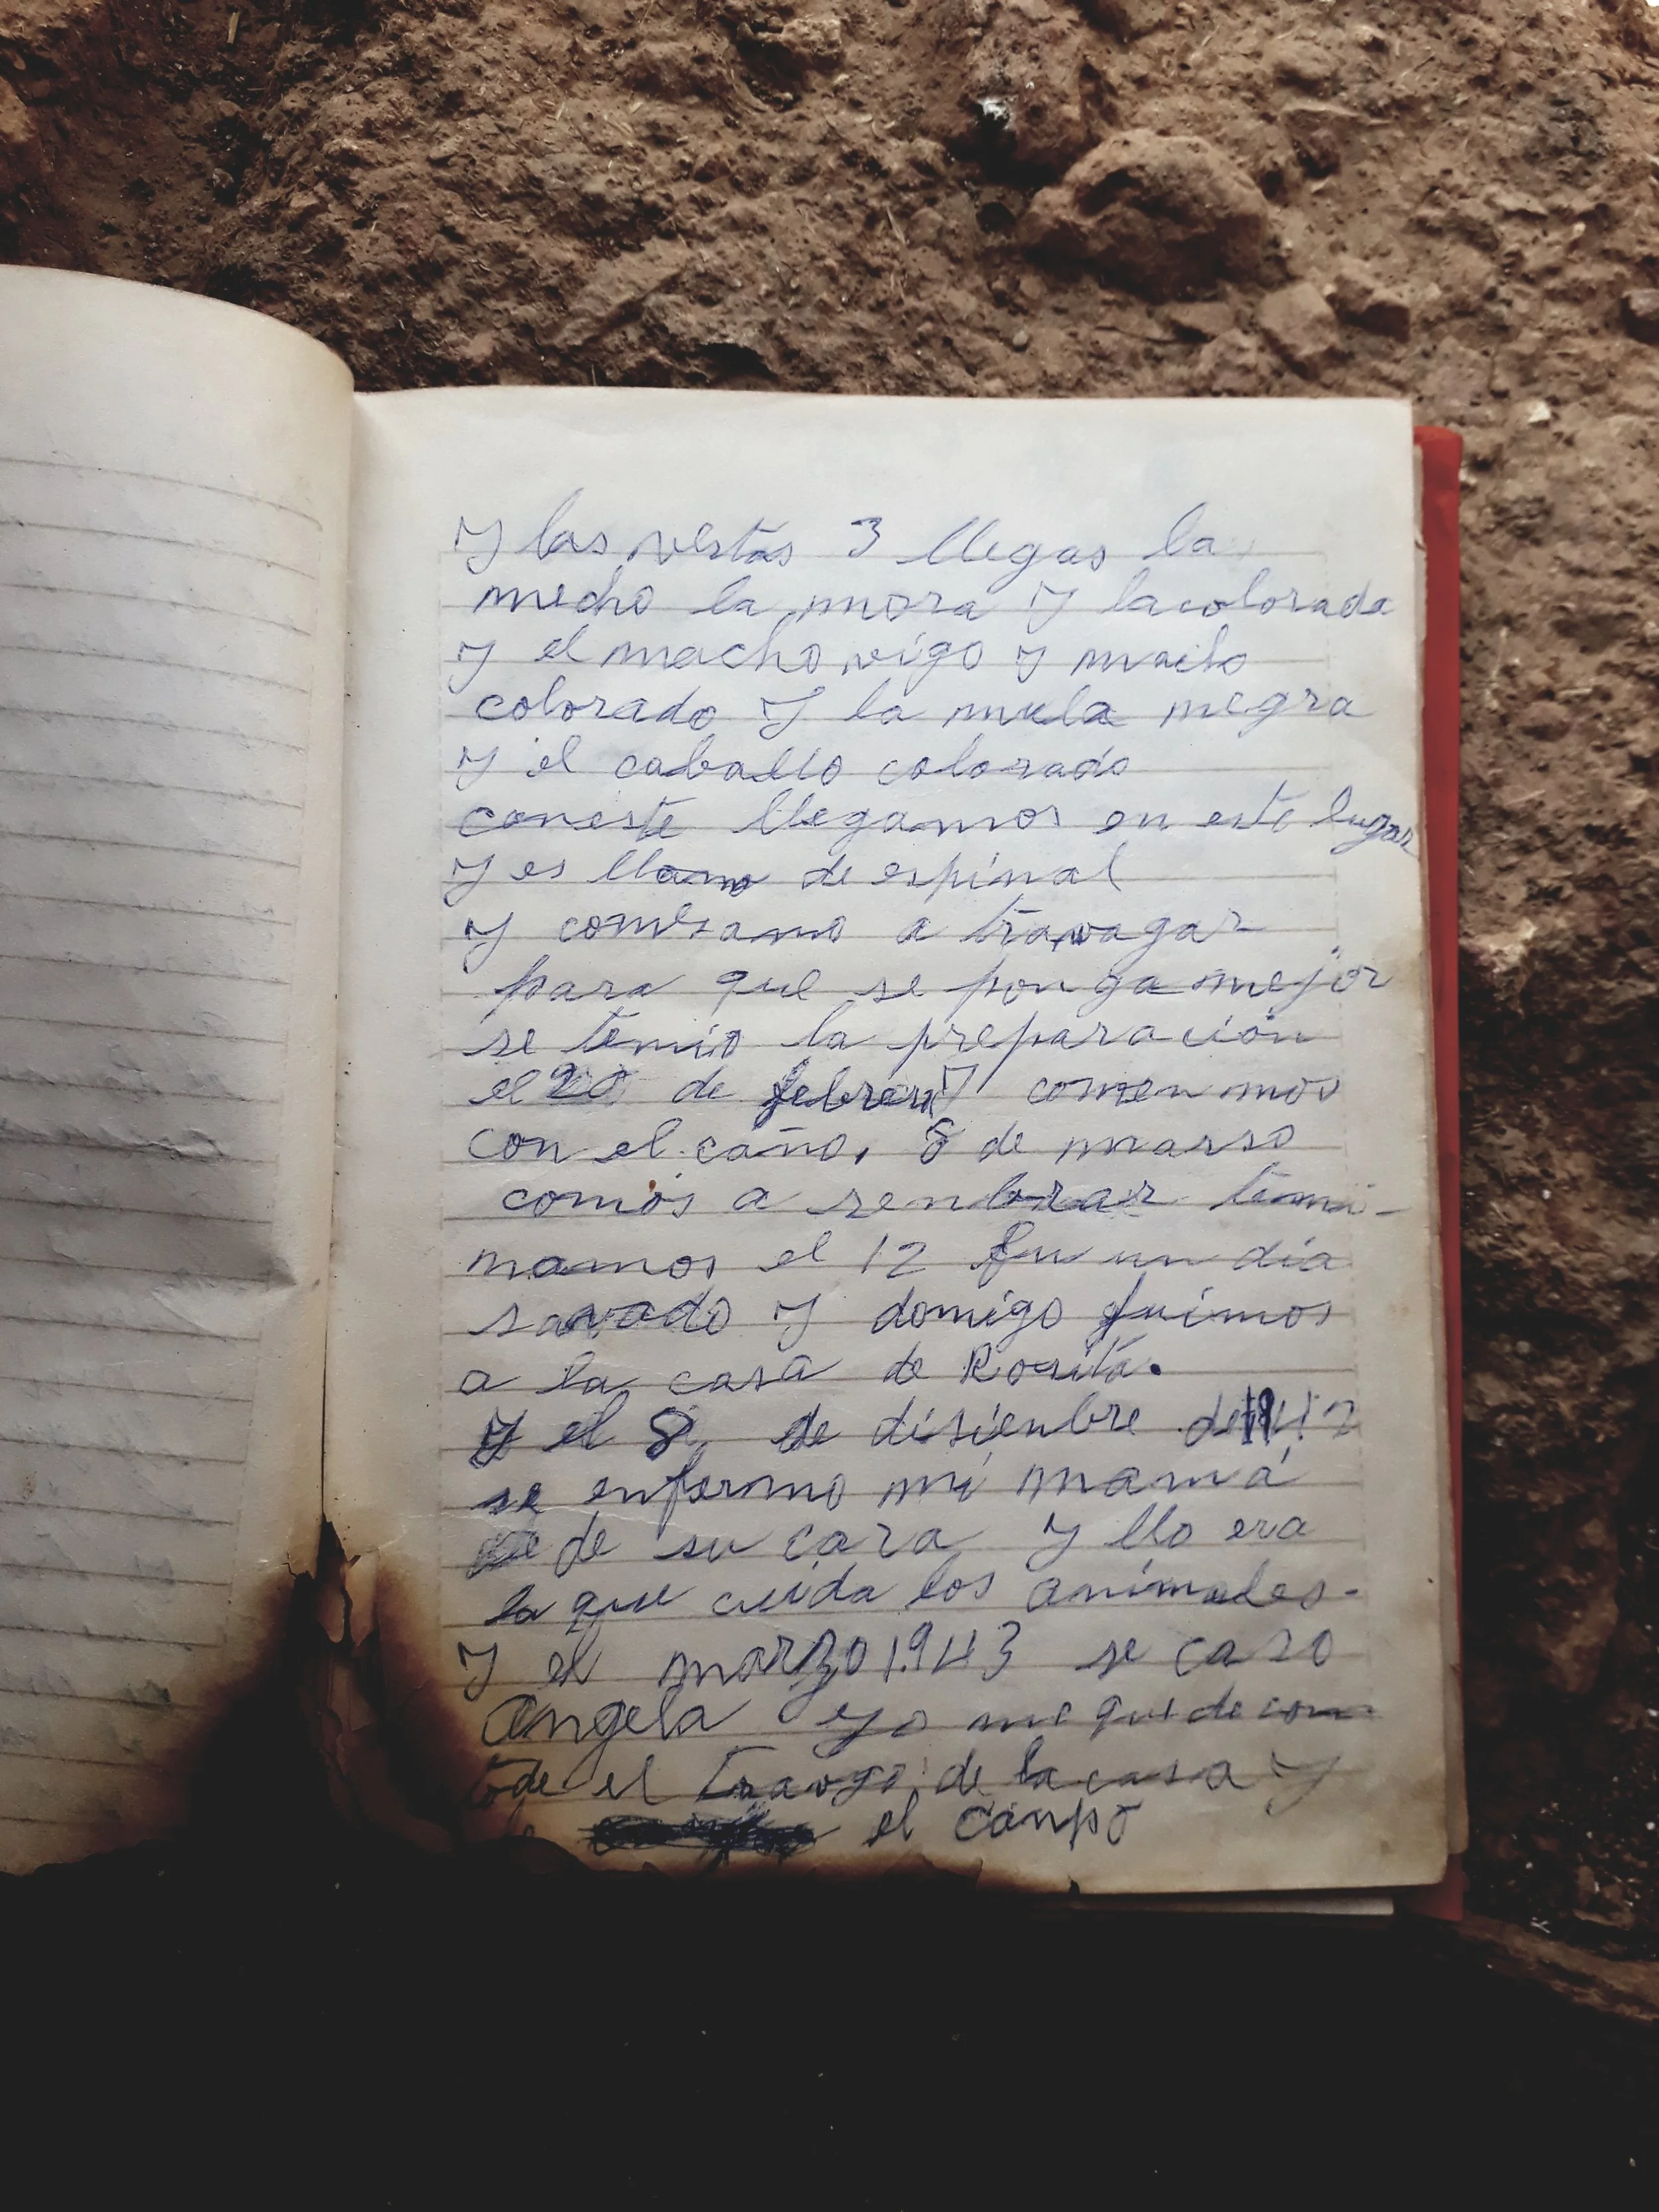 Y las vestas 3 llegas la
mecho la mora Y lacolorada
y el macho vigo y macho
colorado Y la mula negra
y el caballo colorado
coneste llegamos en este lugar
Y es llano de espinal
Y comesamo a travagar
para que se ponga mejor
se temio la preparación
el 20 de febrer Y comenmos
con el caño, 8 de marso
comos a senbrar termi-
namos el 12 fu un día
savado Y domigo fuimos
a la casa de Rosita.
Y el 8 de disienbre de
se enfermo mi mamá
de su cara Y llo era
la que cuida los animales-
Y el marzo 1.943 se caso
Angela yo me quede con
tode el travgo de la casa Y
el canpo